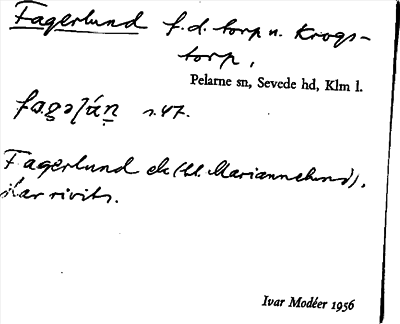 Fagerlund f.d. torp u. Krogs-
torp,
Pelarne sn, Sevede hd, Klm l.
s. 47.
Fagerlund ek (bl. Mariannelund),
har rivits.
Ivar Modéer 1956